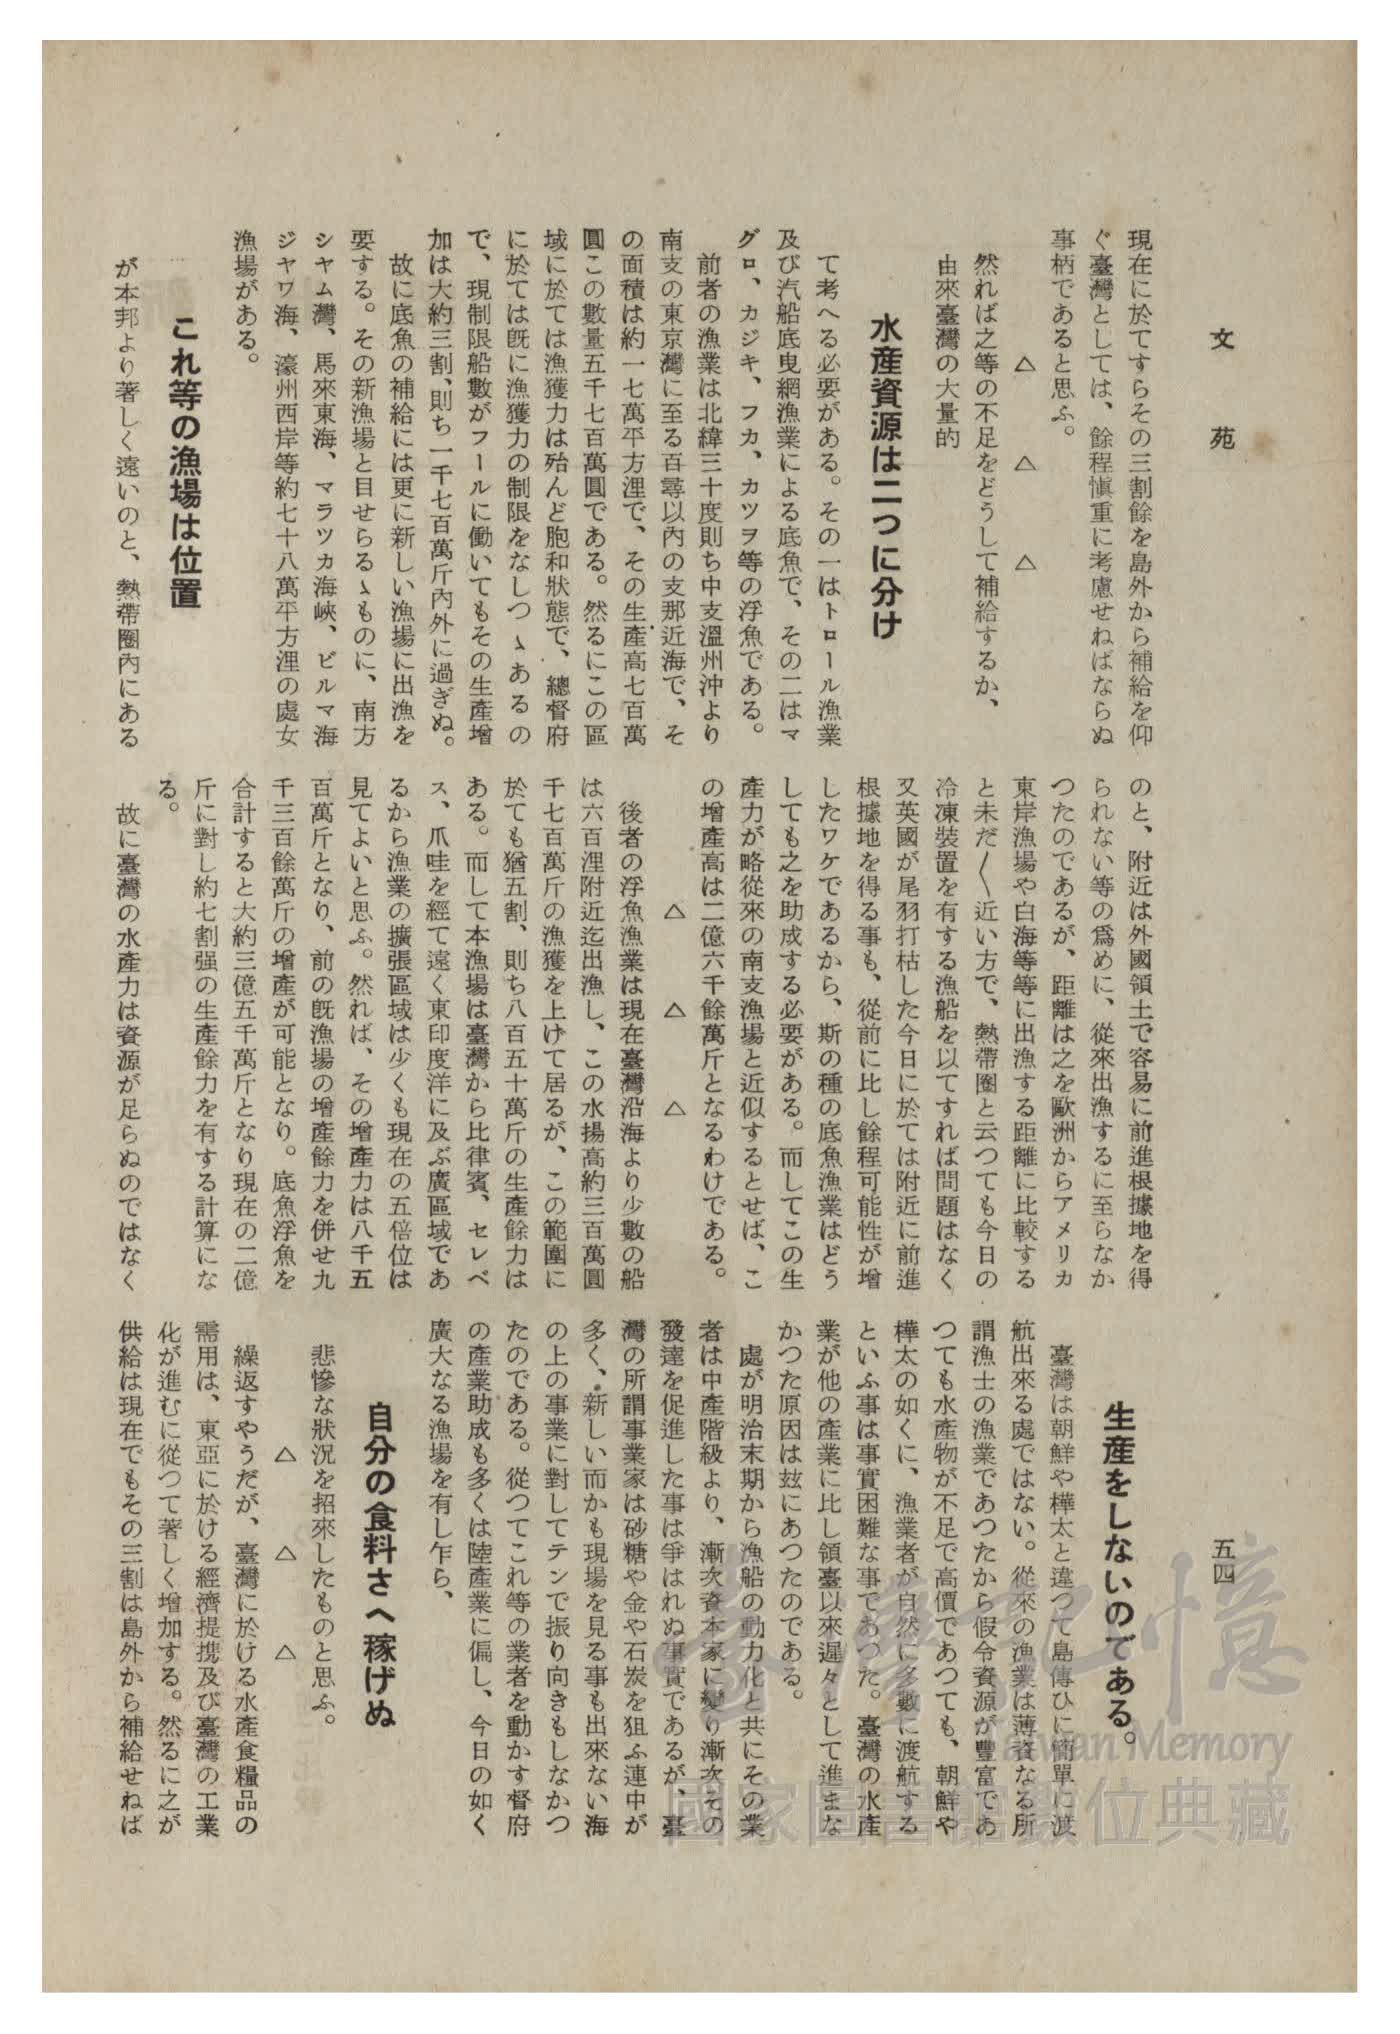 文苑
五四
現在に於てすらその三割餘を島外から補給を仰
ぐ臺灣としては、餘程愼重に考慮せねばならぬ
事柄であると思ふ。
△　△　△
然れば之等の不足をどうして補給するか、
由來臺灣の大量的
水産資源は二つに分け
て考へる必要がある。その一はトロール漁業
及び汽船底曳網漁業による底魚で、その二はマ
グロ、カジキ、フカ、カツヲ等の浮魚である。
前者の漁業は北緯三十度則ち中支溫州沖より
南支の東京灣に至る百尋以內の支那近海で、そ
の面積は約一七萬平方浬で、その生產高七百萬
圓この數量五千七百萬圓である。然るにこの區
域に於ては漁獲力は殆んど胞和狀態で、總督府
に於ては旣に漁獲力の制限をなしつゝあるの
で、現制限船數がフールに働いてもその生產增
加は大約三割、則ち一千七百萬斤內外に過ぎぬ。
故に底魚の補給には更に新しい漁場に出漁を
要する。その新漁場と目せらるゝものに、南方
シヤム灣、馬來東海、マラツカ海峽、ビルマ海
ジヤワ海、濠州西岸等約七十八萬平方浬の處女
漁場がある。
これ等の漁場は位置
が本邦より著しく遠いのと、熱帶圈內にある
のと、附近は外國領土で容易に前進根據地を得
られない等の爲めに、從來出漁するに至らなか
つたのであるが、距離は之を歐洲からアメリカ
東岸漁場や白海等等に出漁する距離に比較する
と未だ〱近い方で、熱帶圈と云つても今日の
冷凍裝置を有する漁船を以てすれば問題はなく
又英國が尾羽打枯した今日に於ては附近に前進
根據地を得る事も、從前に比し餘程可能性が增
したワケであるから、斯の種の底魚漁業はどう
しても之を助成する必要がある。而してこの生
產力が略從來の南支漁場と近似するとせば、こ
の增產高は二億六千餘萬斤となるわけである。
△　△　△
後者の浮魚漁業は現在臺灣沿海より少數の船
は六百浬附近迄出漁し、この水揚高約三百萬圓
千七百萬斤の漁獲を上げて居るが、この範圍に
於ても猶五割、則ち八百五十萬斤の生產餘力は
ある。而して本漁場は臺灣から比律賓、セレベ
ス、爪哇を經て遠く東印度洋に及ぶ廣區域であ
るから漁業の擴張區域は少くも現在の五倍位は
見てよいと思ふ。然れば、その增產力は八千五
百萬斤となり、前の旣漁場の增產餘力を併せ九
千三百餘萬斤の增產が可能となり。底魚浮魚を
合計すると大約三億五千萬斤となり現在の二億
斤に對し約七割强の生產餘力を有する計算にな
る。
故に臺灣の水產力は資源が足らぬのではなく
生産をしないのである。
臺灣は朝鮮や樺太と違つて島傳ひに簡單に渡
航出來る處ではない。從來の漁業は薄資なる所
謂漁士の漁業であつたから假令資源が豐富であ
つても水產物が不足で高價であつても、朝鮮や
樺太の如くに、漁業者が自然に多數に渡航する
といふ事は事實困難な事であつた。臺灣の水產
業が他の產業に比し領臺以來遲々として進まな
かつた原因は玆にあつたのである。
處が明治末期から漁船の動力化と共にその業
者は中產階級より、漸次資本家に變り漸次その
發達を促進した事は爭はれぬ事實であるが、臺
灣の所謂事業家は砂糖や金や石炭を狙ふ連中が
多く、新しい而かも現場を見る事も出來ない海
の上の事業に對してテンで振り向きもしなかつ
たのである。從つてこれ等の業者を動かす督府
の產業助成も多くは陸產業に偏し、今日の如く
廣大なる漁場を有し乍ら、
自分の食料さへ稼げぬ
悲慘な狀況を招來したものと思ふ。
△　△　△
繰返すやうだが、臺灣に於ける水產食糧品の
需用は、東亞に於ける經濟提携及び臺灣の工業
化が進むに從つて著しく增加する。然るに之が
供給は現在でもその三割は島外から補給せねば
臺灣記憶
Taiwan Memory
國家圖書館數位典藏